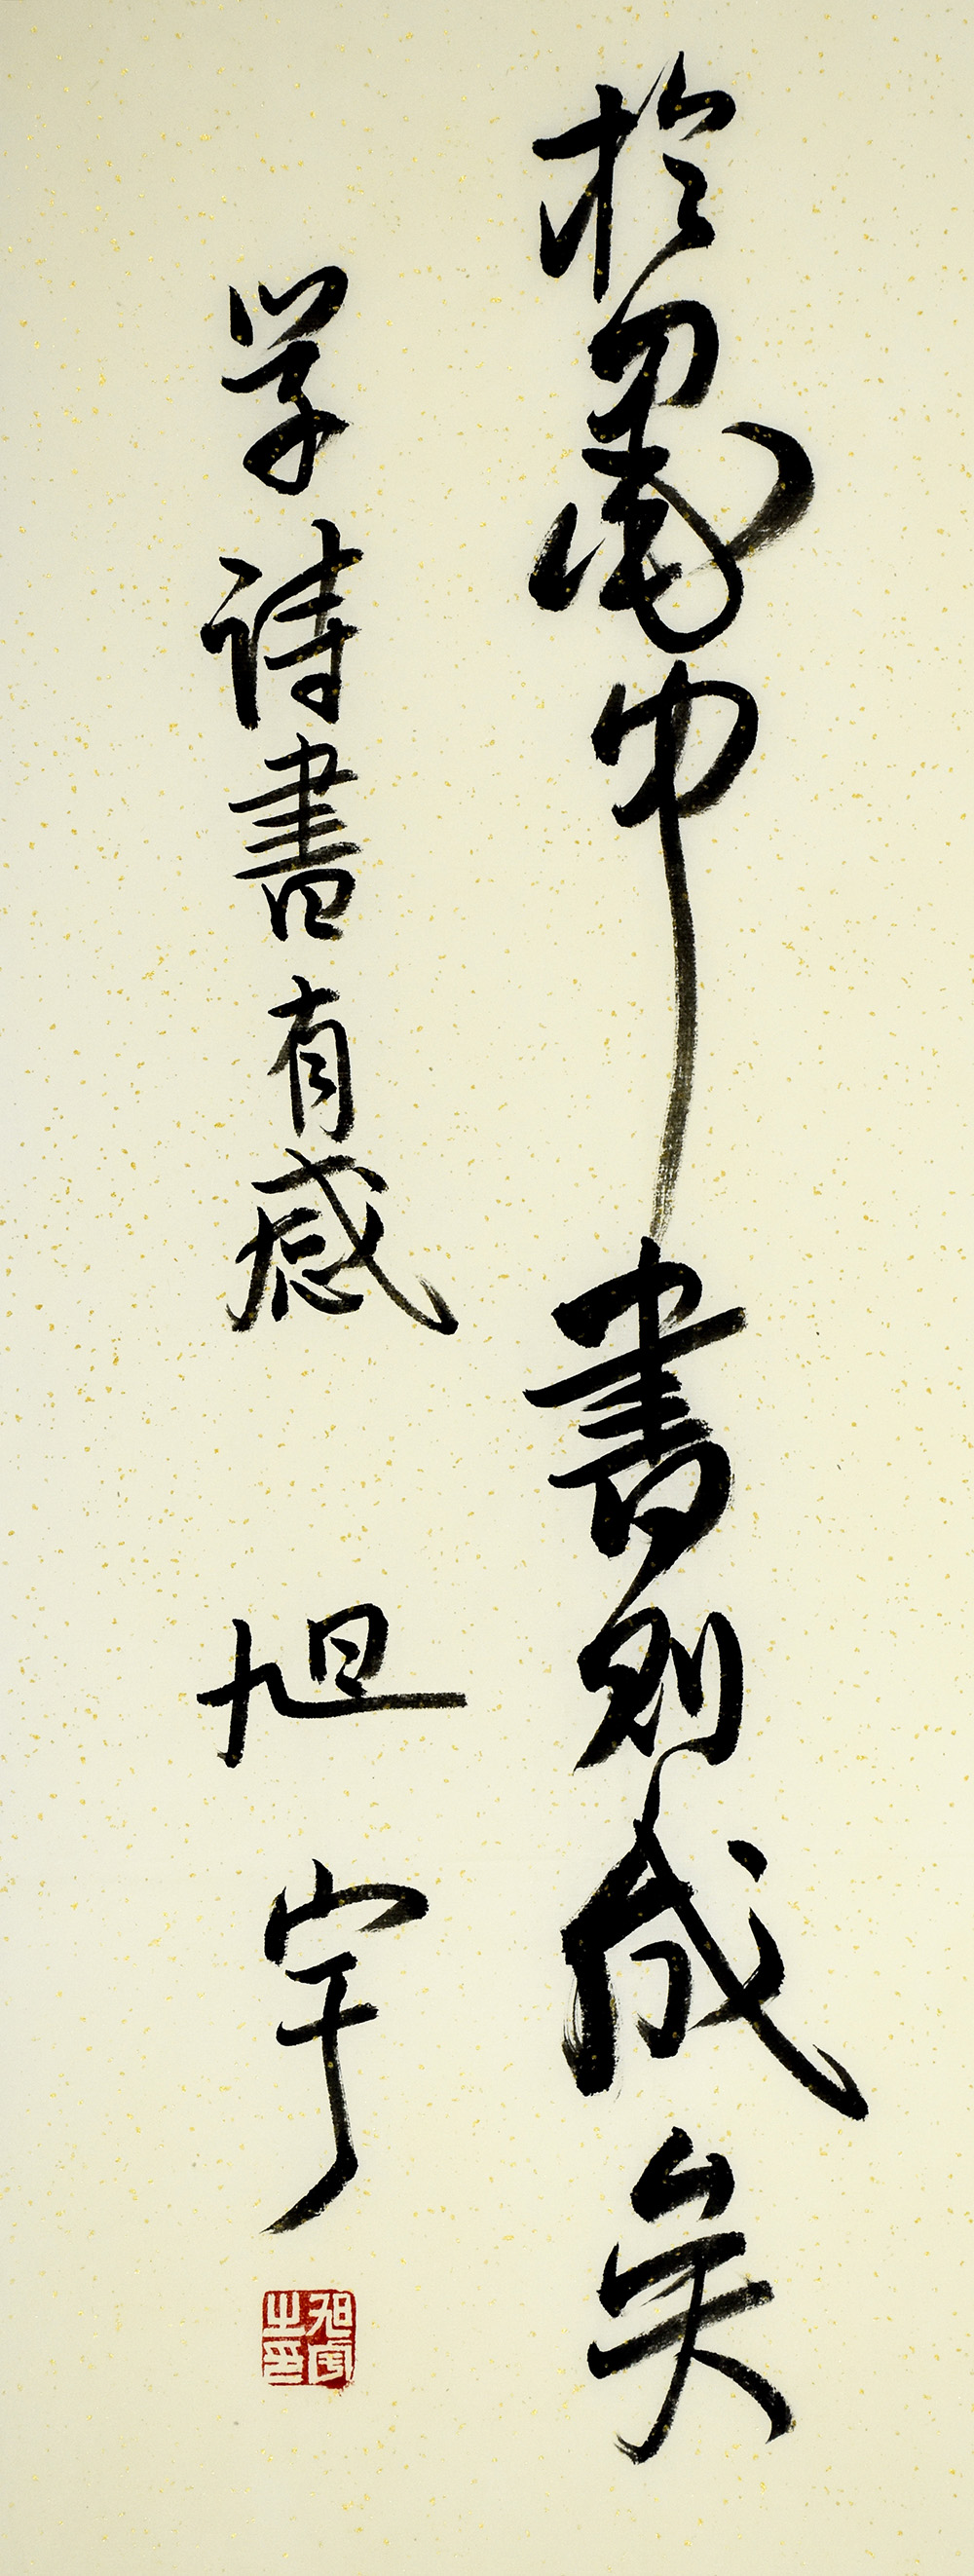 於中書則成矣
学詩書有感
旭宇
旭宇之印